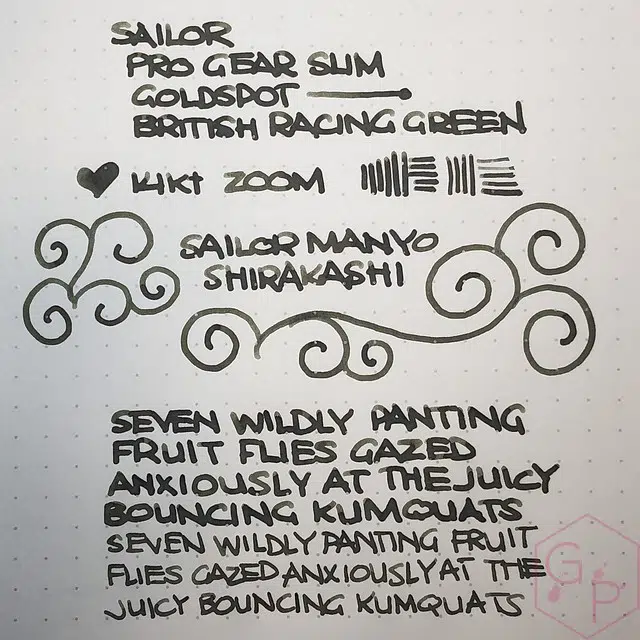 SAILOR
PRO GEAR SLIM
GOLDSPOT
BRITISH RACING GREEN
14Kt ZOOM
SAILOR MANYO
SHIRAKASHI
SEVEN WILDLY PANTING
FRUIT FLIES GAZED
ANXIOUSLY AT THE JUICY
BOUNCING KUMQUATS
SEVEN WILDLY PANTING FRUIT
FLIES GAZED ANXIOUSLY AT THE
JUICY BOUNCING KUMQUATS
G P